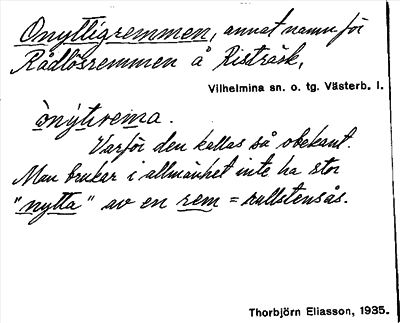 Onyttigremmen, annat namn för
Rådlösremmen å Risträsk,
Vilhelmina sn. o. tg. Västerb. l.
ònýtırema.
Varför den kallas så obekant.
Man brukar i allmänhet inte ha stor
"nytta" av en rem = rullstensås.
Thorbjörn Eliasson, 1935.